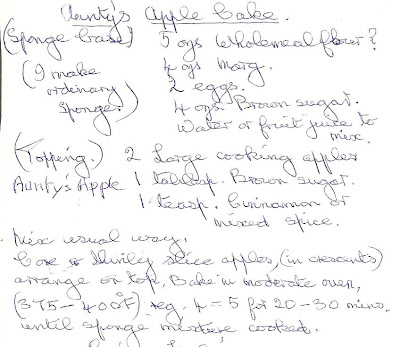 Aunty's Apple Cake.
(Sponge base) 5 ozs Wholemeal flour?
(I make 4 ozs marg.
ordinary 2 eggs.
sponge.) 4 ozs. Brown sugar.
Water or fruit juice to
mix.
(Topping.) 2 Large cooking apples
Aunty's Apple 1 tablesp. Brown sugar.
1 teasp. Cinnamon or
mixed spice.
Mix usual way.
Core & thinly slice apples, (in crescents)
arrange on top. Bake in moderate oven,
(375-400°F) reg. 4-5 for 20-30 mins.
until sponge mixture cooked.